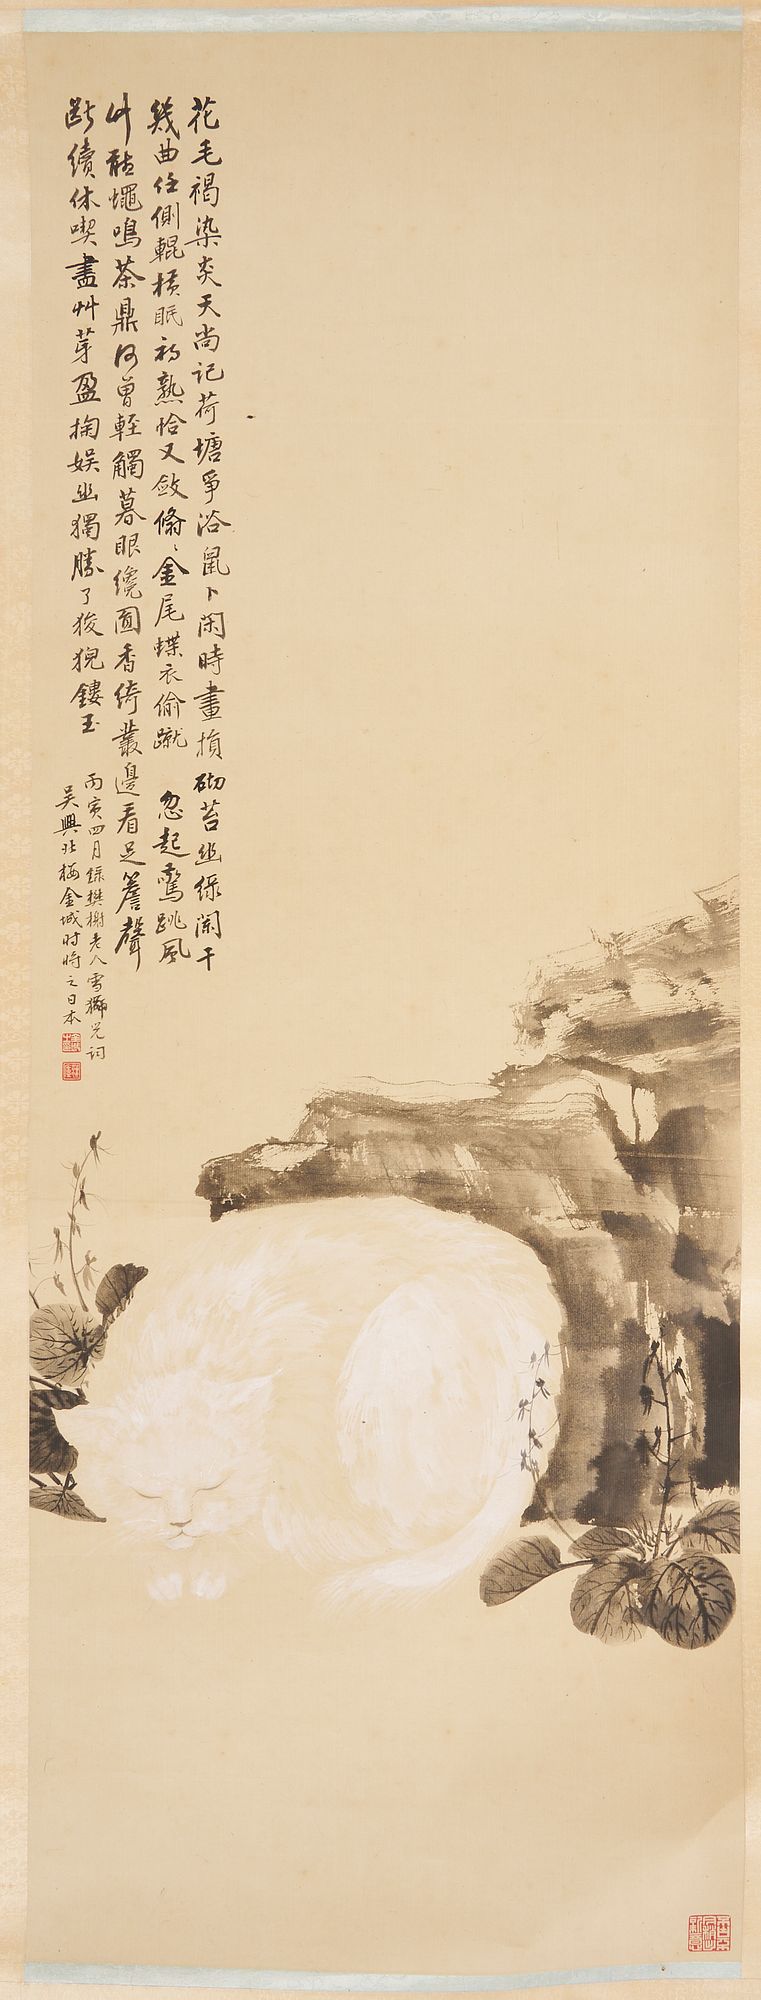 花毛褐染炎天尚記荷塘爭浴鼠卜閑時畫損砌苔幽綠闌干
幾曲任側輥橫眠初熟恰又斂脩〻金尾蝶衣偷蹴 忽起驚跳風
竹聒蠅鳴茶鼎何曾輕觸暮眼纔圓香綺叢邊看足簷聲
斷續休喫盡艸芽盈掬娛幽獨勝了狻猊鏤玉
丙寅四月錄樊榭老人雪獅兒詞
吳興北樓金城時將之日本